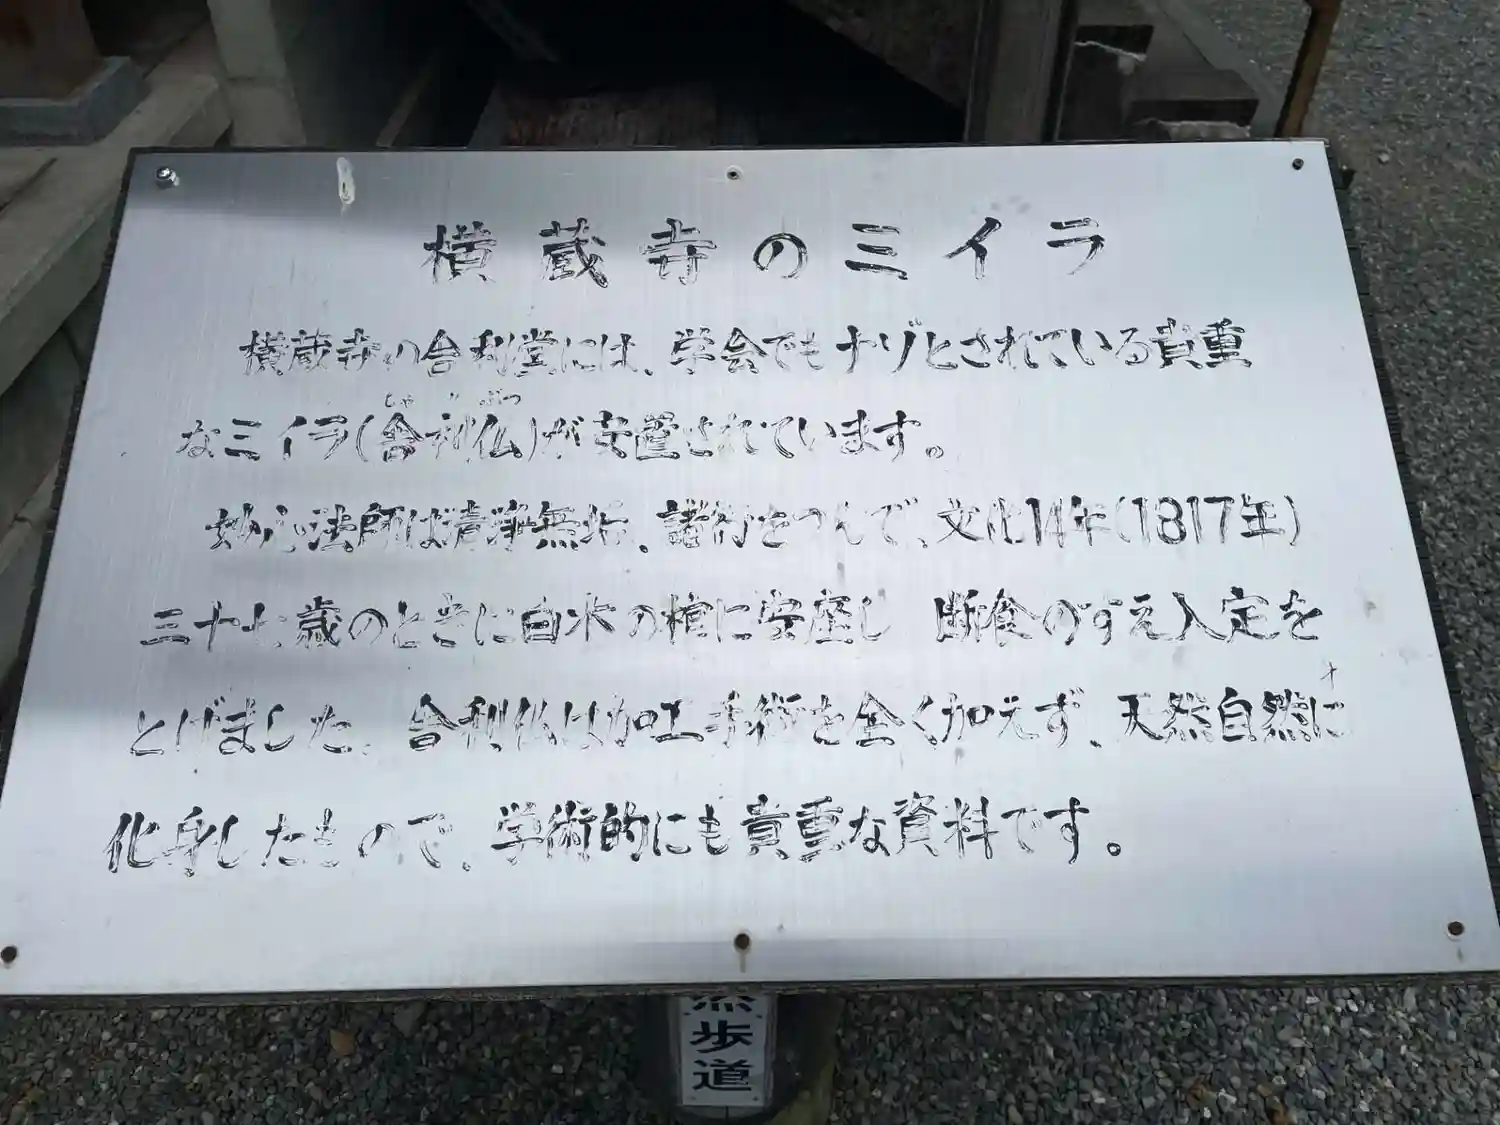 横蔵寺のミイラ
横蔵寺の舎利堂には、学会でもナゾとされている貴重
しゃりぶつ
なミイラ(舎利仏)が安置されています。
妙心法師は清浄無垢、諸行をつんで、文化14年(1817年)
三十七歳のときに白木の棺に安座し 断食のすえ入定を
とげました。舎利仏は加工手術を全く加えず、天然自然に
化身したもので、学術的にも貴重な資料です。
然歩道